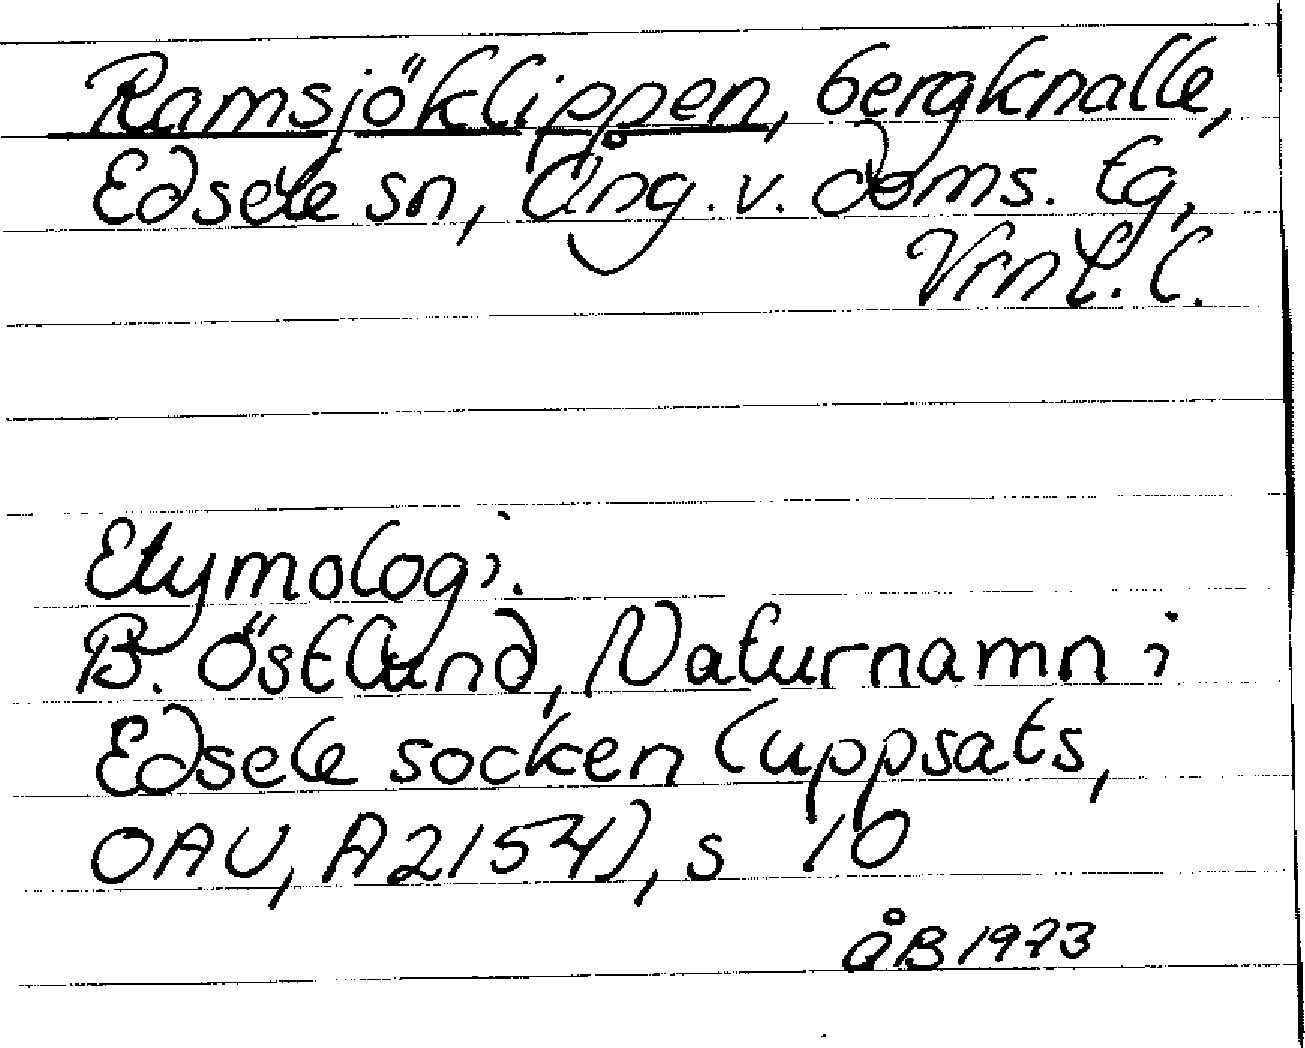 Ramsjöklippen, bergknalle,
Edsele sn, Ång. v. doms. tg,
Vrnl. l.
Etymologi.
B. Östlund, Naturnamn i
Edsele socken (uppsats,
OAU, A2154), s 10
ÅB 1973